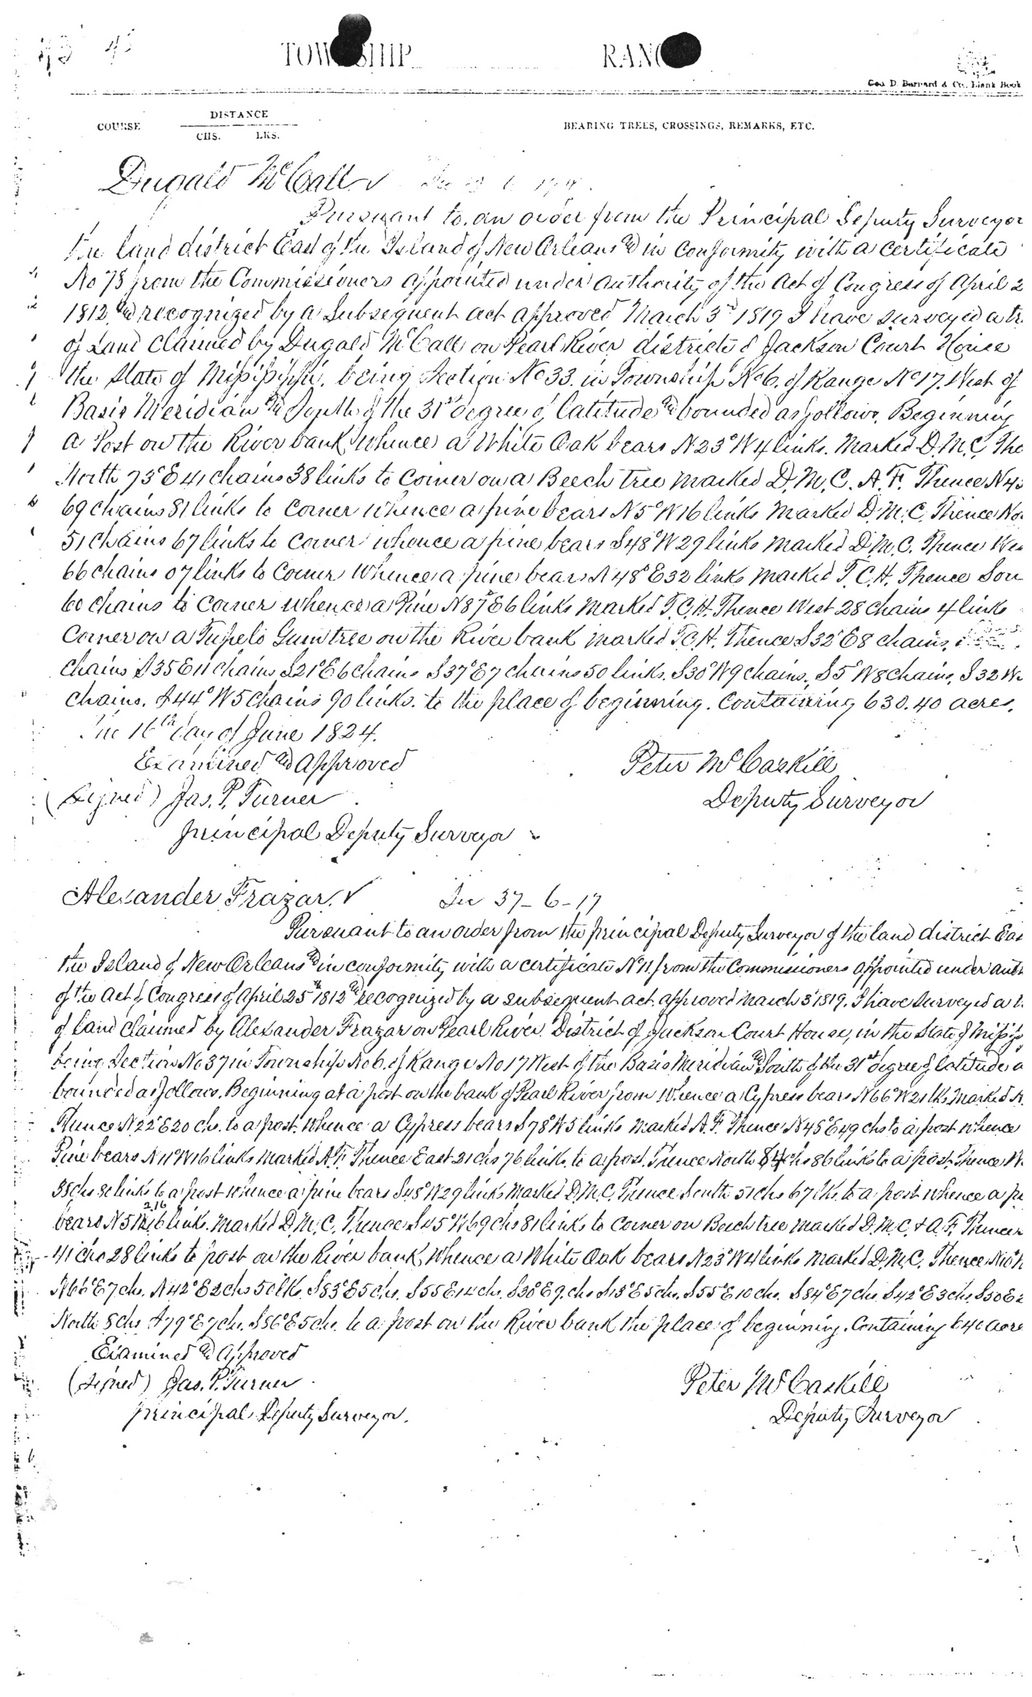 TOWNSHIP RANG
Geo D Barnard & Co. Blank Book
COURSE DISTANCE BEARING TREES, CROSSINGS, REMARKS, ETC.
CHS. LKS.
Dugald McCall ✓
Pursuant to an order from the Principal Deputy Surveyor
the land district East of the Island of New Orleans and in conformity with a certificate
No 78 from the Commissioners appointed under authority of the Act of Congress of April 2
1812 and recognized by a Subsequent act approved March 3rd 1819 I have surveyed a tr
of Land claimed by Dugald McCall on Pearl River district of Jackson Court House
the State of Mississippi, being Section No 33. in Township No 6. of Range No 17. West of
Basis Meridian and South of the 31st degree of Latitude and bounded as follows. Beginning
a Post on the River bank whence a White Oak bears N 23° W 4 links. Marked D.M.C. The
North 73° E 41 chains 38 links to corner on a Beech tree marked D.M.C. A.F. Thence N 45
69 chains 81 links to corner whence a pine bears N 5° W 16 links marked D.M.C. Thence No
51 chains 67 links to corner whence a pine bears S 48° W 29 links marked D.M.C. Thence Wes
66 chains 07 links to corner whence a pine bears N 48° E 32 links marked T.C.H. Thence Sou
60 chains to corner whence a Pine N 87° E 6 links marked T.C.H. Thence West 28 chains 4 links
Corner on a Tupelo Gum tree on the River bank marked T.C.H. Thence S 32° E 8 chains,
chains S 35 E 11 chains S 21° E 6 chains S 37° E 7 chains 50 links. S 30° W 9 chains, S 5° W 8 chains, S 32 W
chains. S 44° W 5 chains 90 links. to the place of beginning. Containing 630.40 acres.
The 16th day of June 1824.
Examined and Approved Peter McCaskill
(Signed) Jas. P. Turner Deputy Surveyor
Principal Deputy Surveyor
Alexander Frazar. ✓ Sec 37-6-17
Pursuant to an order from the principal Deputy Surveyor of the land district Eas
the Island of New Orleans and in conformity with a certificate No 11 from the Commissioners appointed under auth
of the Act of Congress of April 25th 1812 and recognized by a subsequent act approved March 3d 1819. I have surveyed a t
of land claimed by Alexander Frazar on Pearl River District of Jackson Court House, in the State of Missip
being Section No 37 in Township No 6. of Range No 17 West of the Basis Meridian and South of the 31st degree of Latitude a
bounded as follows. Beginning at a post on the bank of Pearl River, from Whence a Cypress bears N 66° W 21 lks marked A
Thence N 22° E 20 chs. to a post. whence a Cypress bears S 78° W 5 links marked A.F. Thence N 45° E 49 chs to a post whence
Pine bears N 11° W 16 links marked A.F. Thence East 21 chs 76 links to a post. Thence North 84 chs 86 links to a post Thence W
38 chs 81 links to a post whence a pine bears S 48° W 29 links marked D.M.C. Thence South 51 chs 67 lks. to a post whence a pi
bears N 5 W 16 links. marked D.M.C. Thence S 45° W 69 chs 81 links to corner on Beech tree marked D.M.C. & A.F. Thence
41 chs 28 links to post on the River bank, whence a White Oak bears N 23° W 4 links marked D.M.C. Thence N 10°
N 66° E 7 chs. N 42° E 2 chs 50 lks. S 83° E 5 chs. S 55 E 14 chs. S 30° E 9 chs S 13° E 5 chs. S 55° E 10 chs. S 84° E 7 chs S 42° E 3 chs. S 30 E 2
North 8 chs. S 79° E 7 chs. S 86° E 5 chs. to a post on the River bank the place of beginning. Containing 640 acre
Examined and Approved
(Signed) Jas. P. Turner Peter McCaskill
Principal Deputy Surveyor. Deputy Surveyor